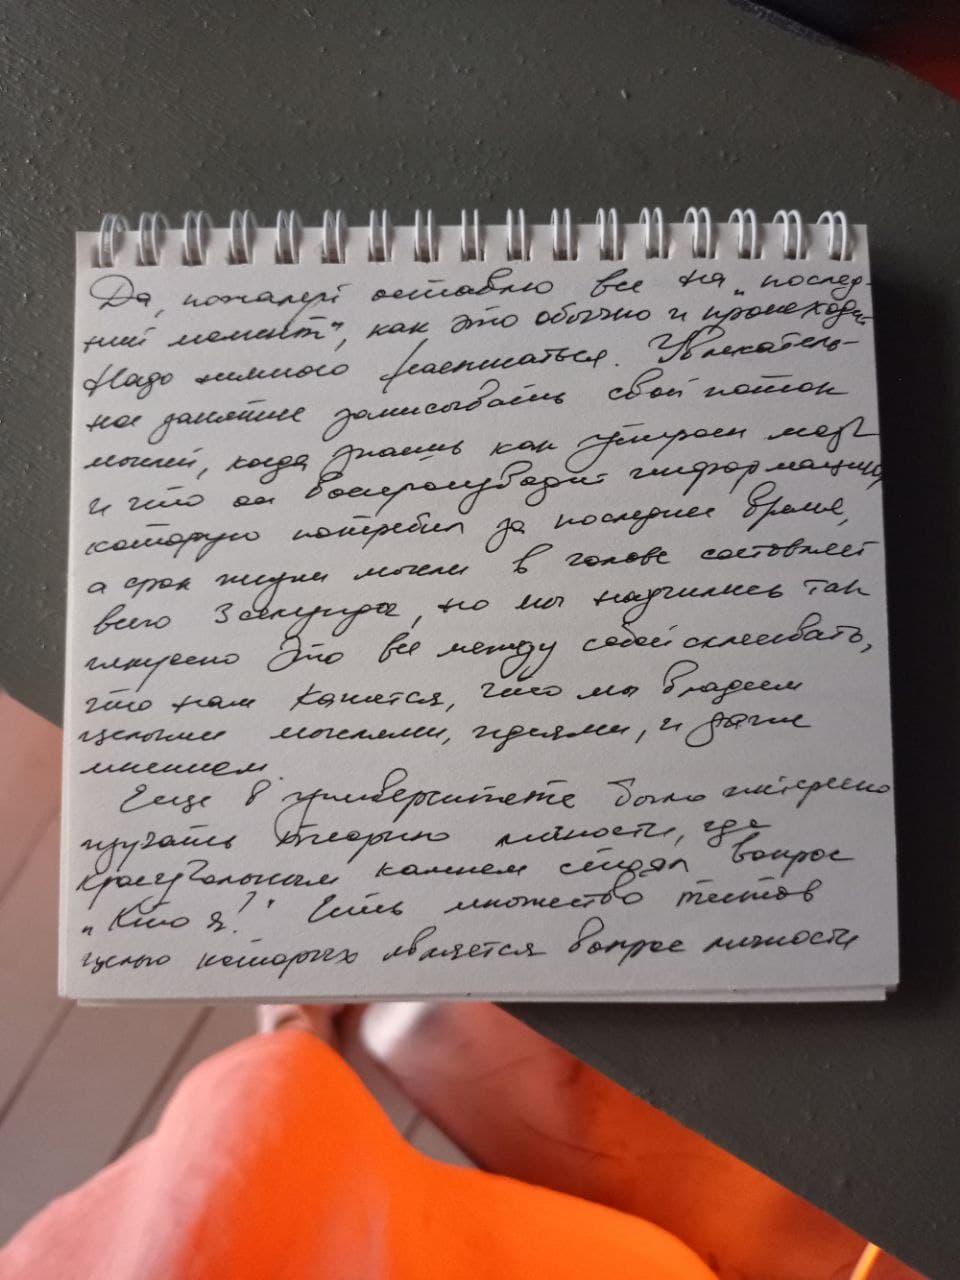 Да, пожалуй оставлю все на „послед-
ний момент", как это обычно и происходит
Надо немного расписаться. Увлекатель-
ное занятие записывать свой поток
мыслей, когда знаешь как устроен мозг
и что он воспроизводит информацию,
которую потребил за последнее время,
а срок жизни мысли в голове составляет
всего 3 секунды, но мы научились так
искусно это все между собой склеивать,
что нам кажется, что мы владеем
целыми мыслями, идеями, и даже
мнением.
Еще в университете было интересно
изучать теорию личности, где
краеугольным камнем стоял вопрос
„Кто я?" Есть множество тестов
целью которых является вопрос личности